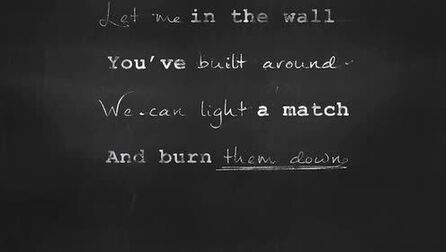 Let me in the wall
You've built around
We can light a match
And burn them down